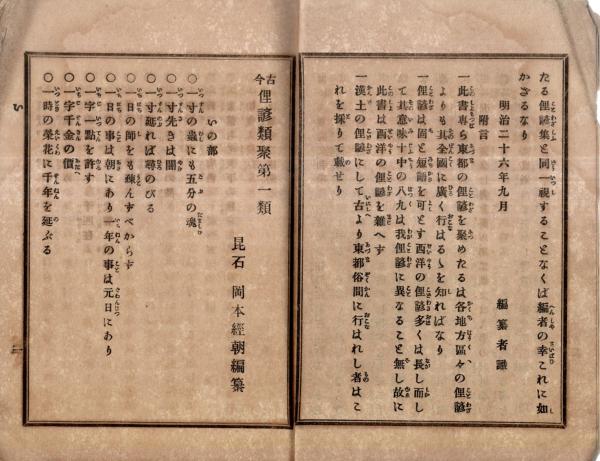 たる俚諺集と同一視することなくば編者の幸これに如
かざるなり
明治二十六年九月
編纂者識
附言
一此書專ら東都の俚諺を聚めたるは各地方區々の俚諺
よりも其全國に廣く行はるゝを知ればなり
一俚諺は固と短語を可とす西洋の俚諺多くは長し而し
て其意味十中の八九は我俚諺に異なること無し故に
此書は西洋の俚諺を雜へず
一漢土の俚諺にして古より東都俗間に行はれし者はこ
れを採りて載せり
古今俚諺類聚第一類
昆石 岡本經朝編纂
いの部
〇一寸の蟲にも五分の魂
〇一寸先きは闇
〇一寸延れば尋のびる
〇一日の師をも疎んずべからず
〇一日の事は朝にあり一年の事は元日にあり
〇一字一點を許す
〇一字千金の價
〇一時の榮花に千年を延ぶる
い